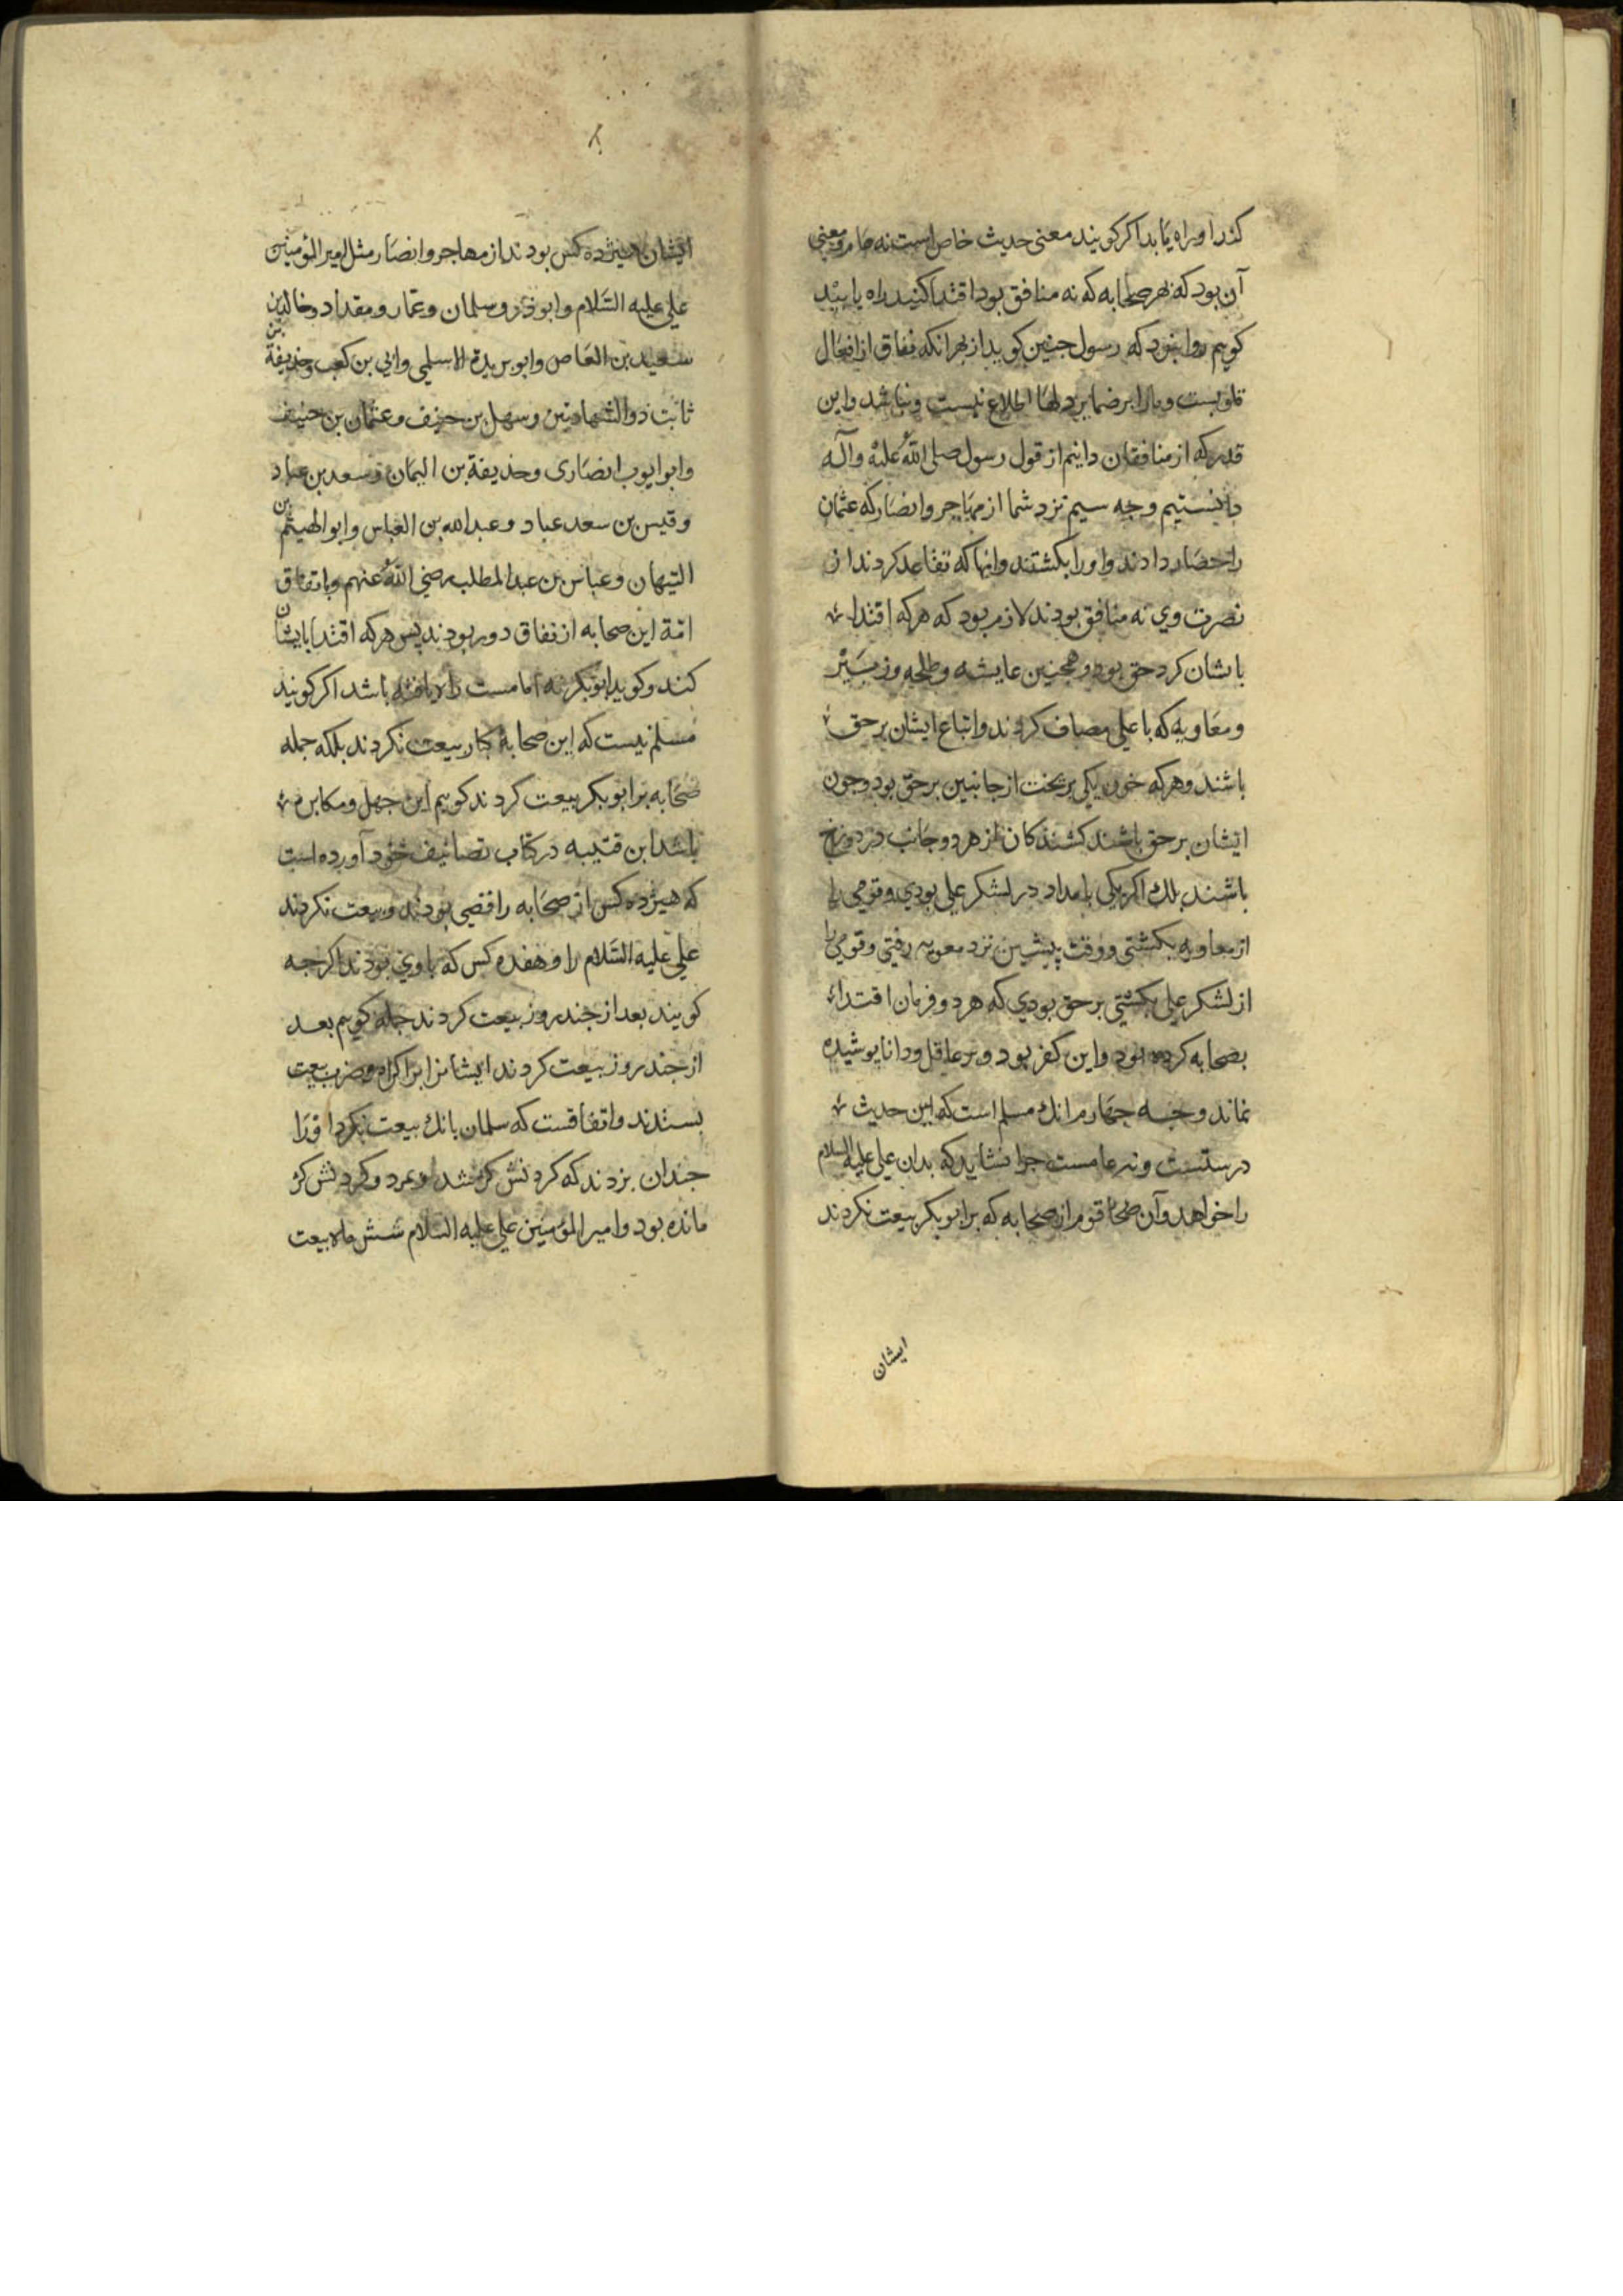 کند او راه یابد اکر کویند معنی حدیث خاص است نه عام و معنی
آن بود که بهر صحابه که نه منافق بود اقتدا کنید راه یابید
کوییم روا نبود که رسول جنین کوید از بهر انکه نفاق از افعال
قلوبست و ما را بر ضمایر دلها اطلاع نیست و نباشد و این
قدر که از منافقان دانیم از قول رسول صلی الله علیه وآله
دانستیم وجه سیم نزد شما از مهاجر و انصار که عثمان
را حصار دادند و او را بکشتند و انها که تقاعد کردند از
نصرت وی نه منافق بودند لازم بود که هر که اقتدا
بایشان کرد حق بود و همجنین عایشه و طلحه و زبیر
و معاویه که با علی مصاف کردند و اتباع ایشان بر حق
باشند و هر که خون یکی بریخت از جانبین بر حق بود و جون
ایشان بر حق باشند کشندکان از هر دو جانب در دوزخ
باشند بلك اکر یکی بامداد در لشکر علی بودی و قومی را
از معاویه بکشتی و وقت پیشین نزد معویه رفتی و قومی را
از لشکر علی بکشتی بر حق بودی که هر دو فرمان اقتدا
بصحابه کرده بود و این کفر بود و بر عاقل و دانا پوشیده
نماند وجه جهارم انك مسلم است که این حدیث
درستست و نه عامست جرا نشاید که بدان علی علیه السلام
را خواهد و آن قوم از صحابه که بر ابوبکر بیعت نکردند
ایشان
ایشان هیژده کس بودند از مهاجر و انصار مثل امیر المؤمنین
علی علیه السلام و ابوذر و سلمان و عمار و مقداد و خالد بن
سعید بن العاص و ابو بریدة الاسلمی و ابی بن کعب و خذیفة بن
ثابت ذوالشهادتین و سهل بن حنیف و عثمان بن حنیف
و ابو ایوب انصاری و حذیفة بن الیمان و سعد بن عباد
و قیس بن سعد عباد و عبد الله بن العباس و ابو الهیثم بن
التیهان و عباس بن عبد المطلب رضی الله عنهم و باتفاق
امّة این صحابه از نفاق دور بودند پس هر که اقتدا بایشان
کند و کوید ابوبکر نه امامست راه یافته باشد اکر کویند
مسلم نیست که این صحابۀ کبار بیعت نکردند بلکه جمله
صحابه بر ابوبکر بیعت کردند کوییم این جهل و مکابره
باشد ابن قتیبه در کتاب تصانیف خود آورده است
که هیژده کس از صحابه رافضی بودند و بیعت نکردند
علی علیه السلام را و هفده کس که با وی بودند اکرجه
کویند بعد از جند روز بیعت کردند جمله کوییم بعد
از جند روز بیعت کردند ایشانرا باکراه و ضرب بیعت
بستدند و اتفاقست که سلمان بانك بیعت نکرد او را
جندان بزدند که کردنش کژ شد و بمرد و کردنش کژ
مانده بود و امیر المؤمنین علی علیه السلام شش ماه بیعت